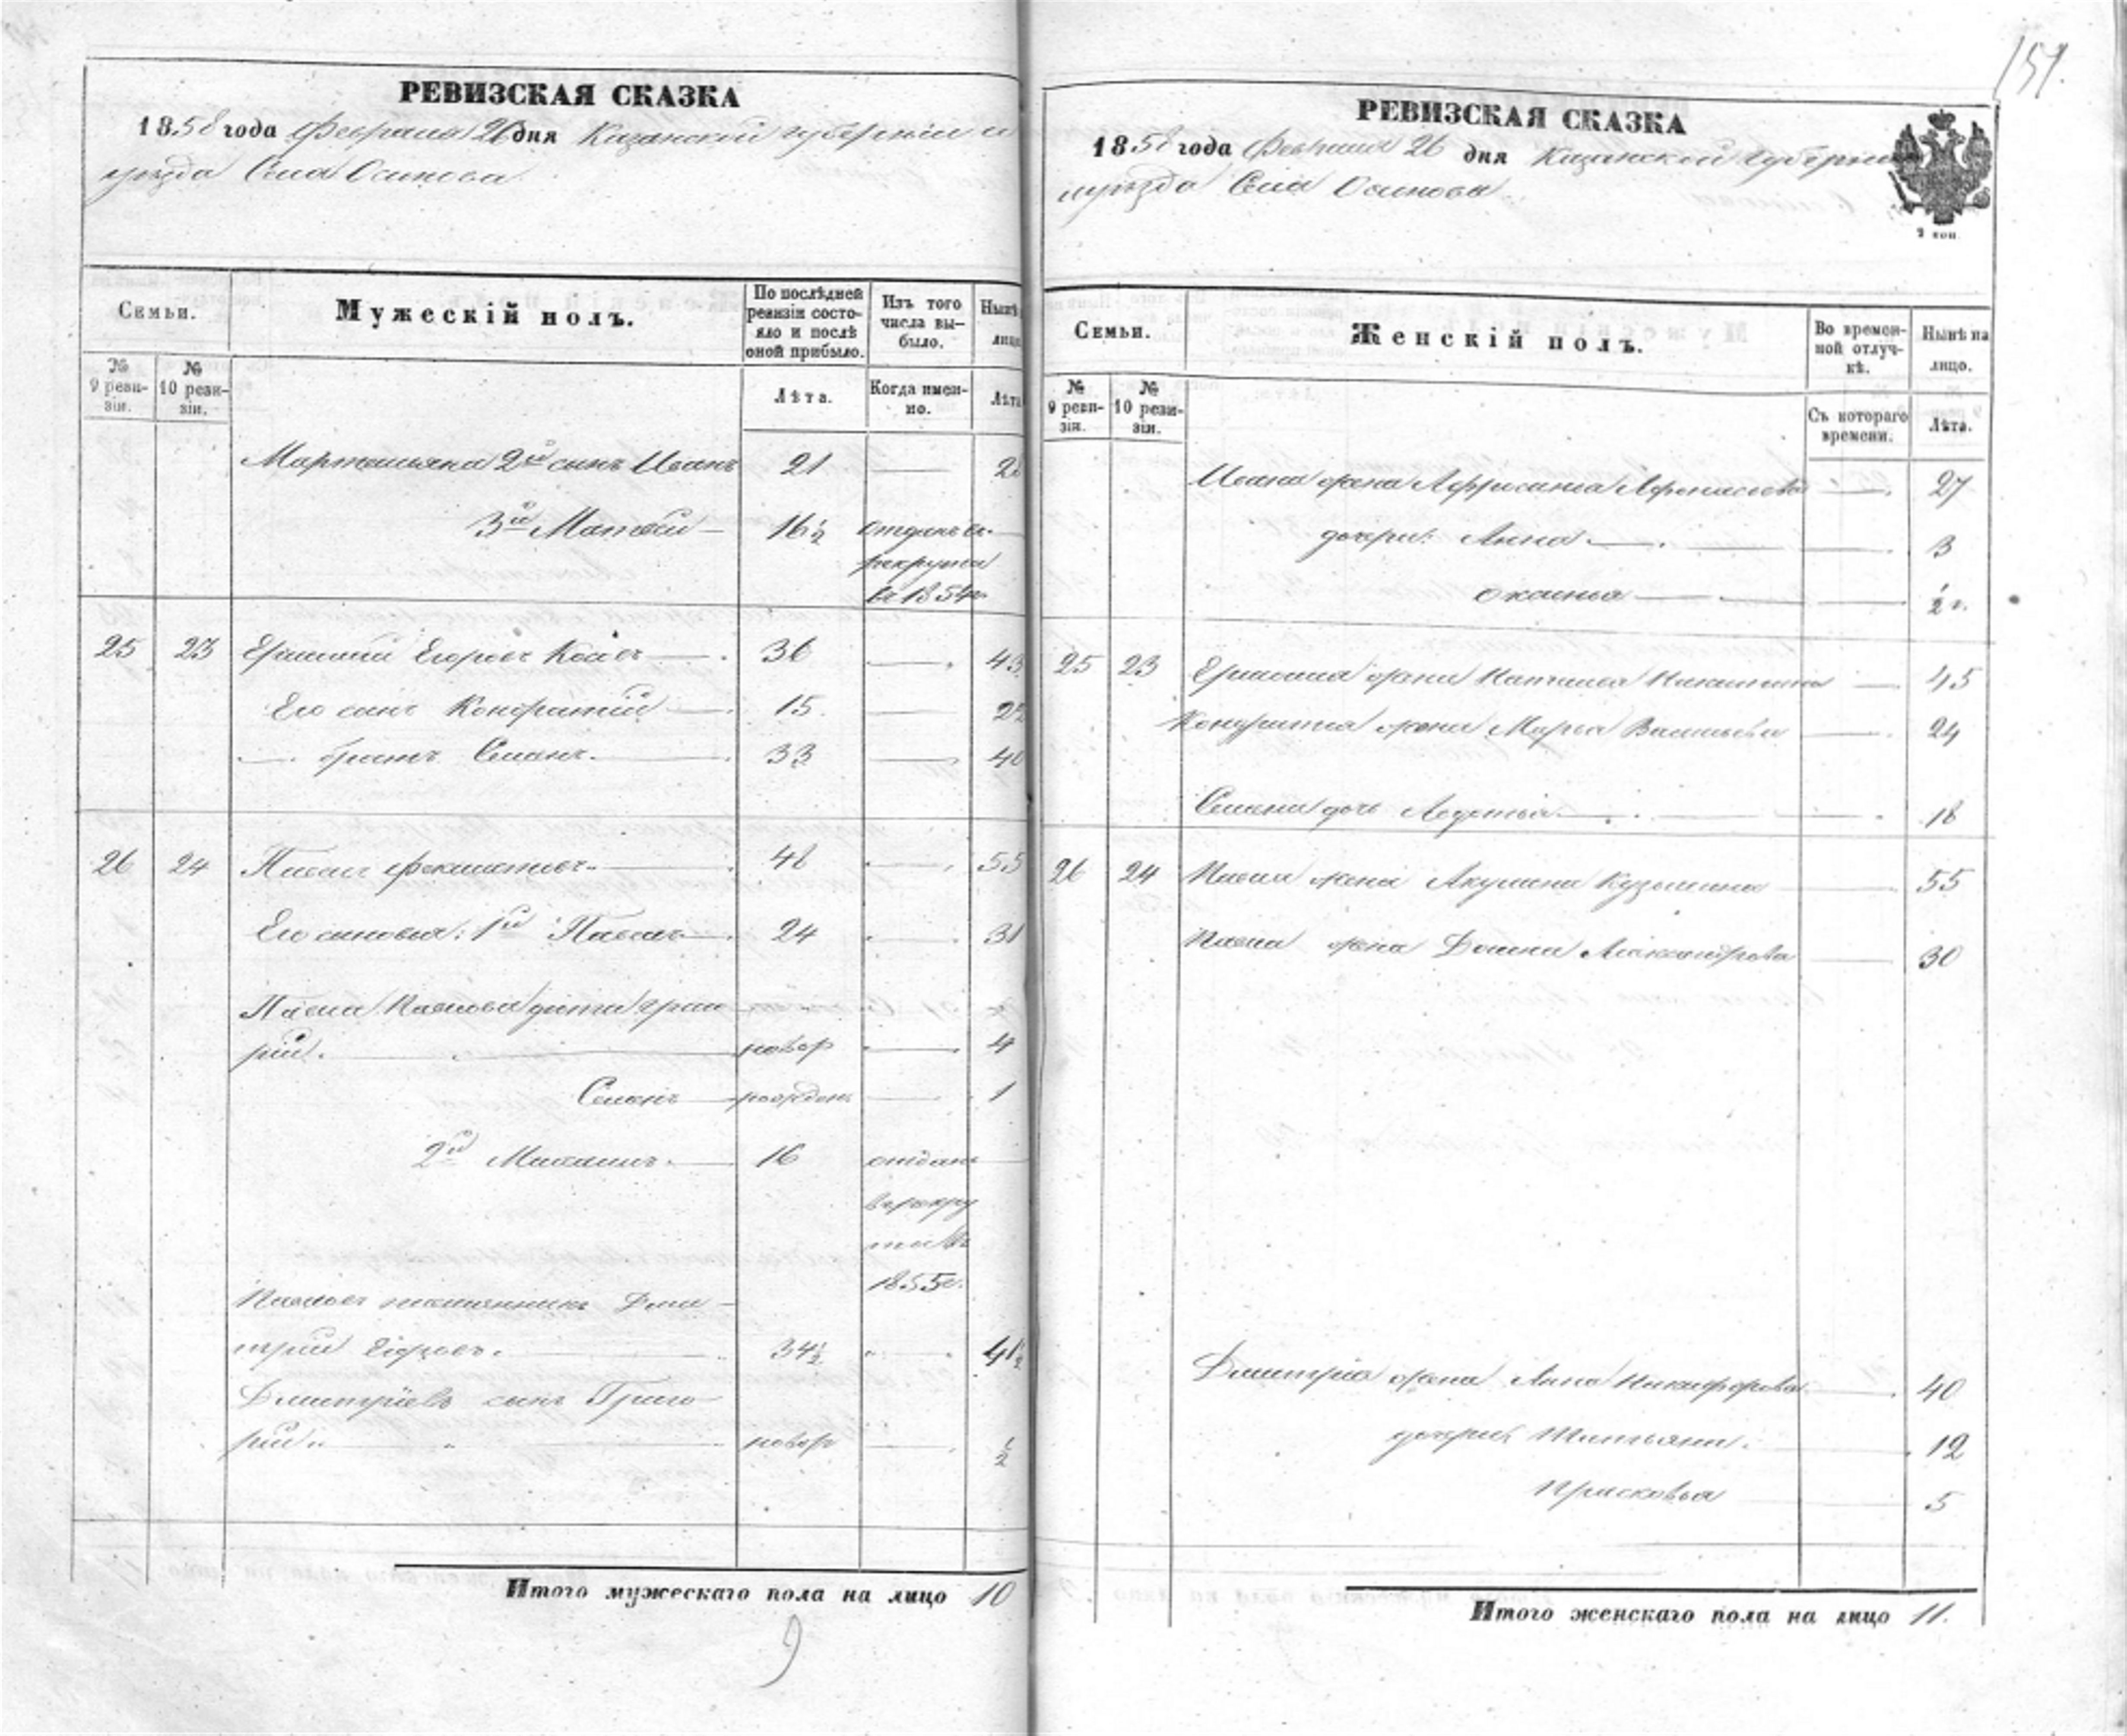 РЕВИЗСКАЯ СКАЗКА
1858 года Февраля 26 дня Казанской губерніи и
уезда Села Осинова
Семьи.
Мужескій полъ.
По послѣдней ревизіи состояло и послѣ оной прибыло.
Изъ того числа выбыло.
Нынѣ
лицо
№ 9 ревизіи.
№ 10 ревизіи.
Лѣта.
Когда именно.
Лѣта
Мартемьяна 2й сынъ Иванъ 21 — 28
3й Матвей — 16½ отданъ въ
рекруты
в 1854г.
25 23 Ермолай Егоровъ 36 — 43
Его сынъ Кондратій 15 — 22
— братъ Семенъ 33 — 40
26 24 Павелъ Феклистовъ 48 — 55
Его сыновья: 1й Павелъ 24 — 31
Павла Павлова дети Григо
рій новор — 4
Семенъ рожден — 1
2й 16 отданъ
в рекру
ты в
1855г.
Павловъ племянникъ Дми-
трій 34½ — 41½
Дмитріевъ сынъ Григо
рій новор — ½
Итого мужескаго пола на лицо 10
9
151.
РЕВИЗСКАЯ СКАЗКА
1858 года Февраля 26 дня Казанской Губерніи
и уезда Села Осинова
2 коп.
Семьи.
Женскій полъ.
Во временной отлучкѣ.
Нынѣ на лицо.
№ 9 ревизіи.
№ 10 ревизіи.
Съ котораго времени.
Лѣта.
Ивана жена Афросинья Афонасьева — 27
дочери: Анна — 3
Оксинья — ½ г.
25 23 Ермолая жена Наталья Никитина — 45
Кондратия жена Марья Васильева — 24
Семена дочь Авдотья — 18
26 24 Павла жена Акулина Кузьмина — 55
Павла жена Домна Александрова — 30
Дмитрія жена Анна Никифорова — 40
дочери Татьяна 12
Прасковья 5
Итого женскаго пола на лицо 11.